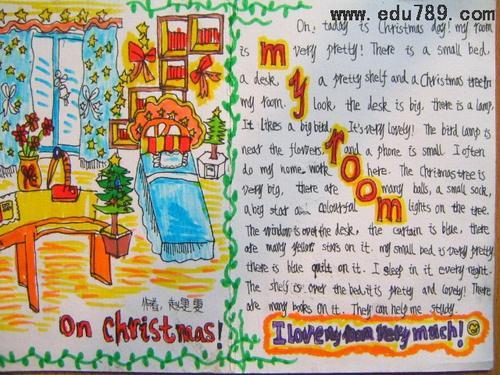 www.edu789.com
Oh, today is Christmas day! my room
is very pretty! There is a small bed,
a desk, a pretty shelf and a Christmas tree in
my room. Look, the desk is big, there is a lamp.
It likes a big bird. It's very lovely! The bird lamp is
near the flowers and a phone is small. I often
do my home work here. The Christmas tree is
very big, there are many balls, a small sock,
a big star colourful lights on the tree.
The window is over the desk, the curtain is blue, there
are many yellow stars on it. my small bed is very pretty
there is blue quilt on it. I sleep in it every night.
The shelf is over the bed, it is pretty and lovely! There
are many books on it. They can help me study.
my room
I love my room very much!
作者:
On Christmas!